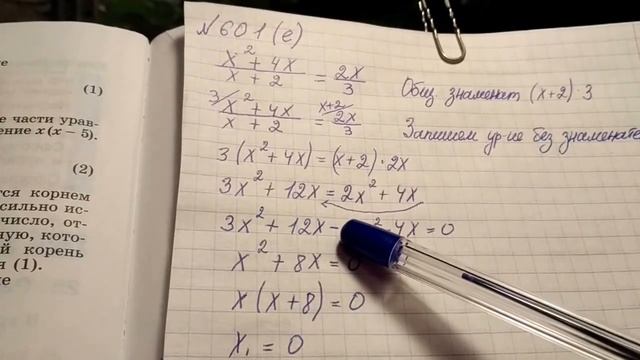 е
(1)
е части урав-
ение x(x − 5).
(2)
тся корнем
сильно ис-
число, от-
ную, кото-
й корень
я (1).
ие
№601(е)
x² + 4x / x + 2 = 2x / 3
Общ. знаменат (x+2)·3
3/ x² + 4x / x + 2 = x+2/ 2x / 3
Запишем ур-ие без знаменате
3(x² + 4x) = (x+2)·2x
3x² + 12x = 2x² + 4x
3x² + 12x − ² − 4x = 0
x² + 8x = 0
x(x+8) = 0
x₁ = 0